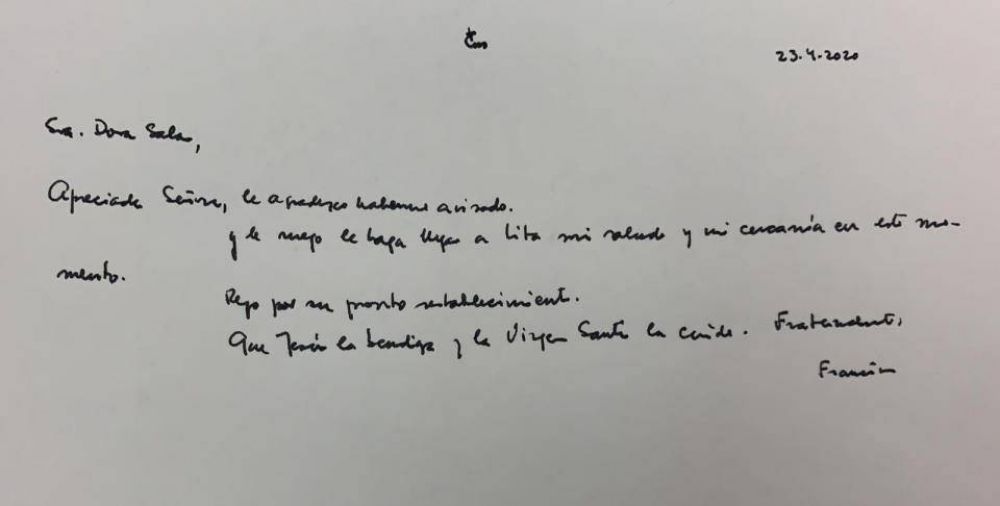 23.4.2020
Sra. Dora Salas,
Apreciada Señora, le agradezco haberme avisado.
y le ruego le haga llegar a Lita mi saludo y mi cercanía en este mo-
mento.
Rezo por su pronto restablecimiento.
Que Jesús la bendiga y la Virgen Santa la cuide. Fraternalmente,
Francisco